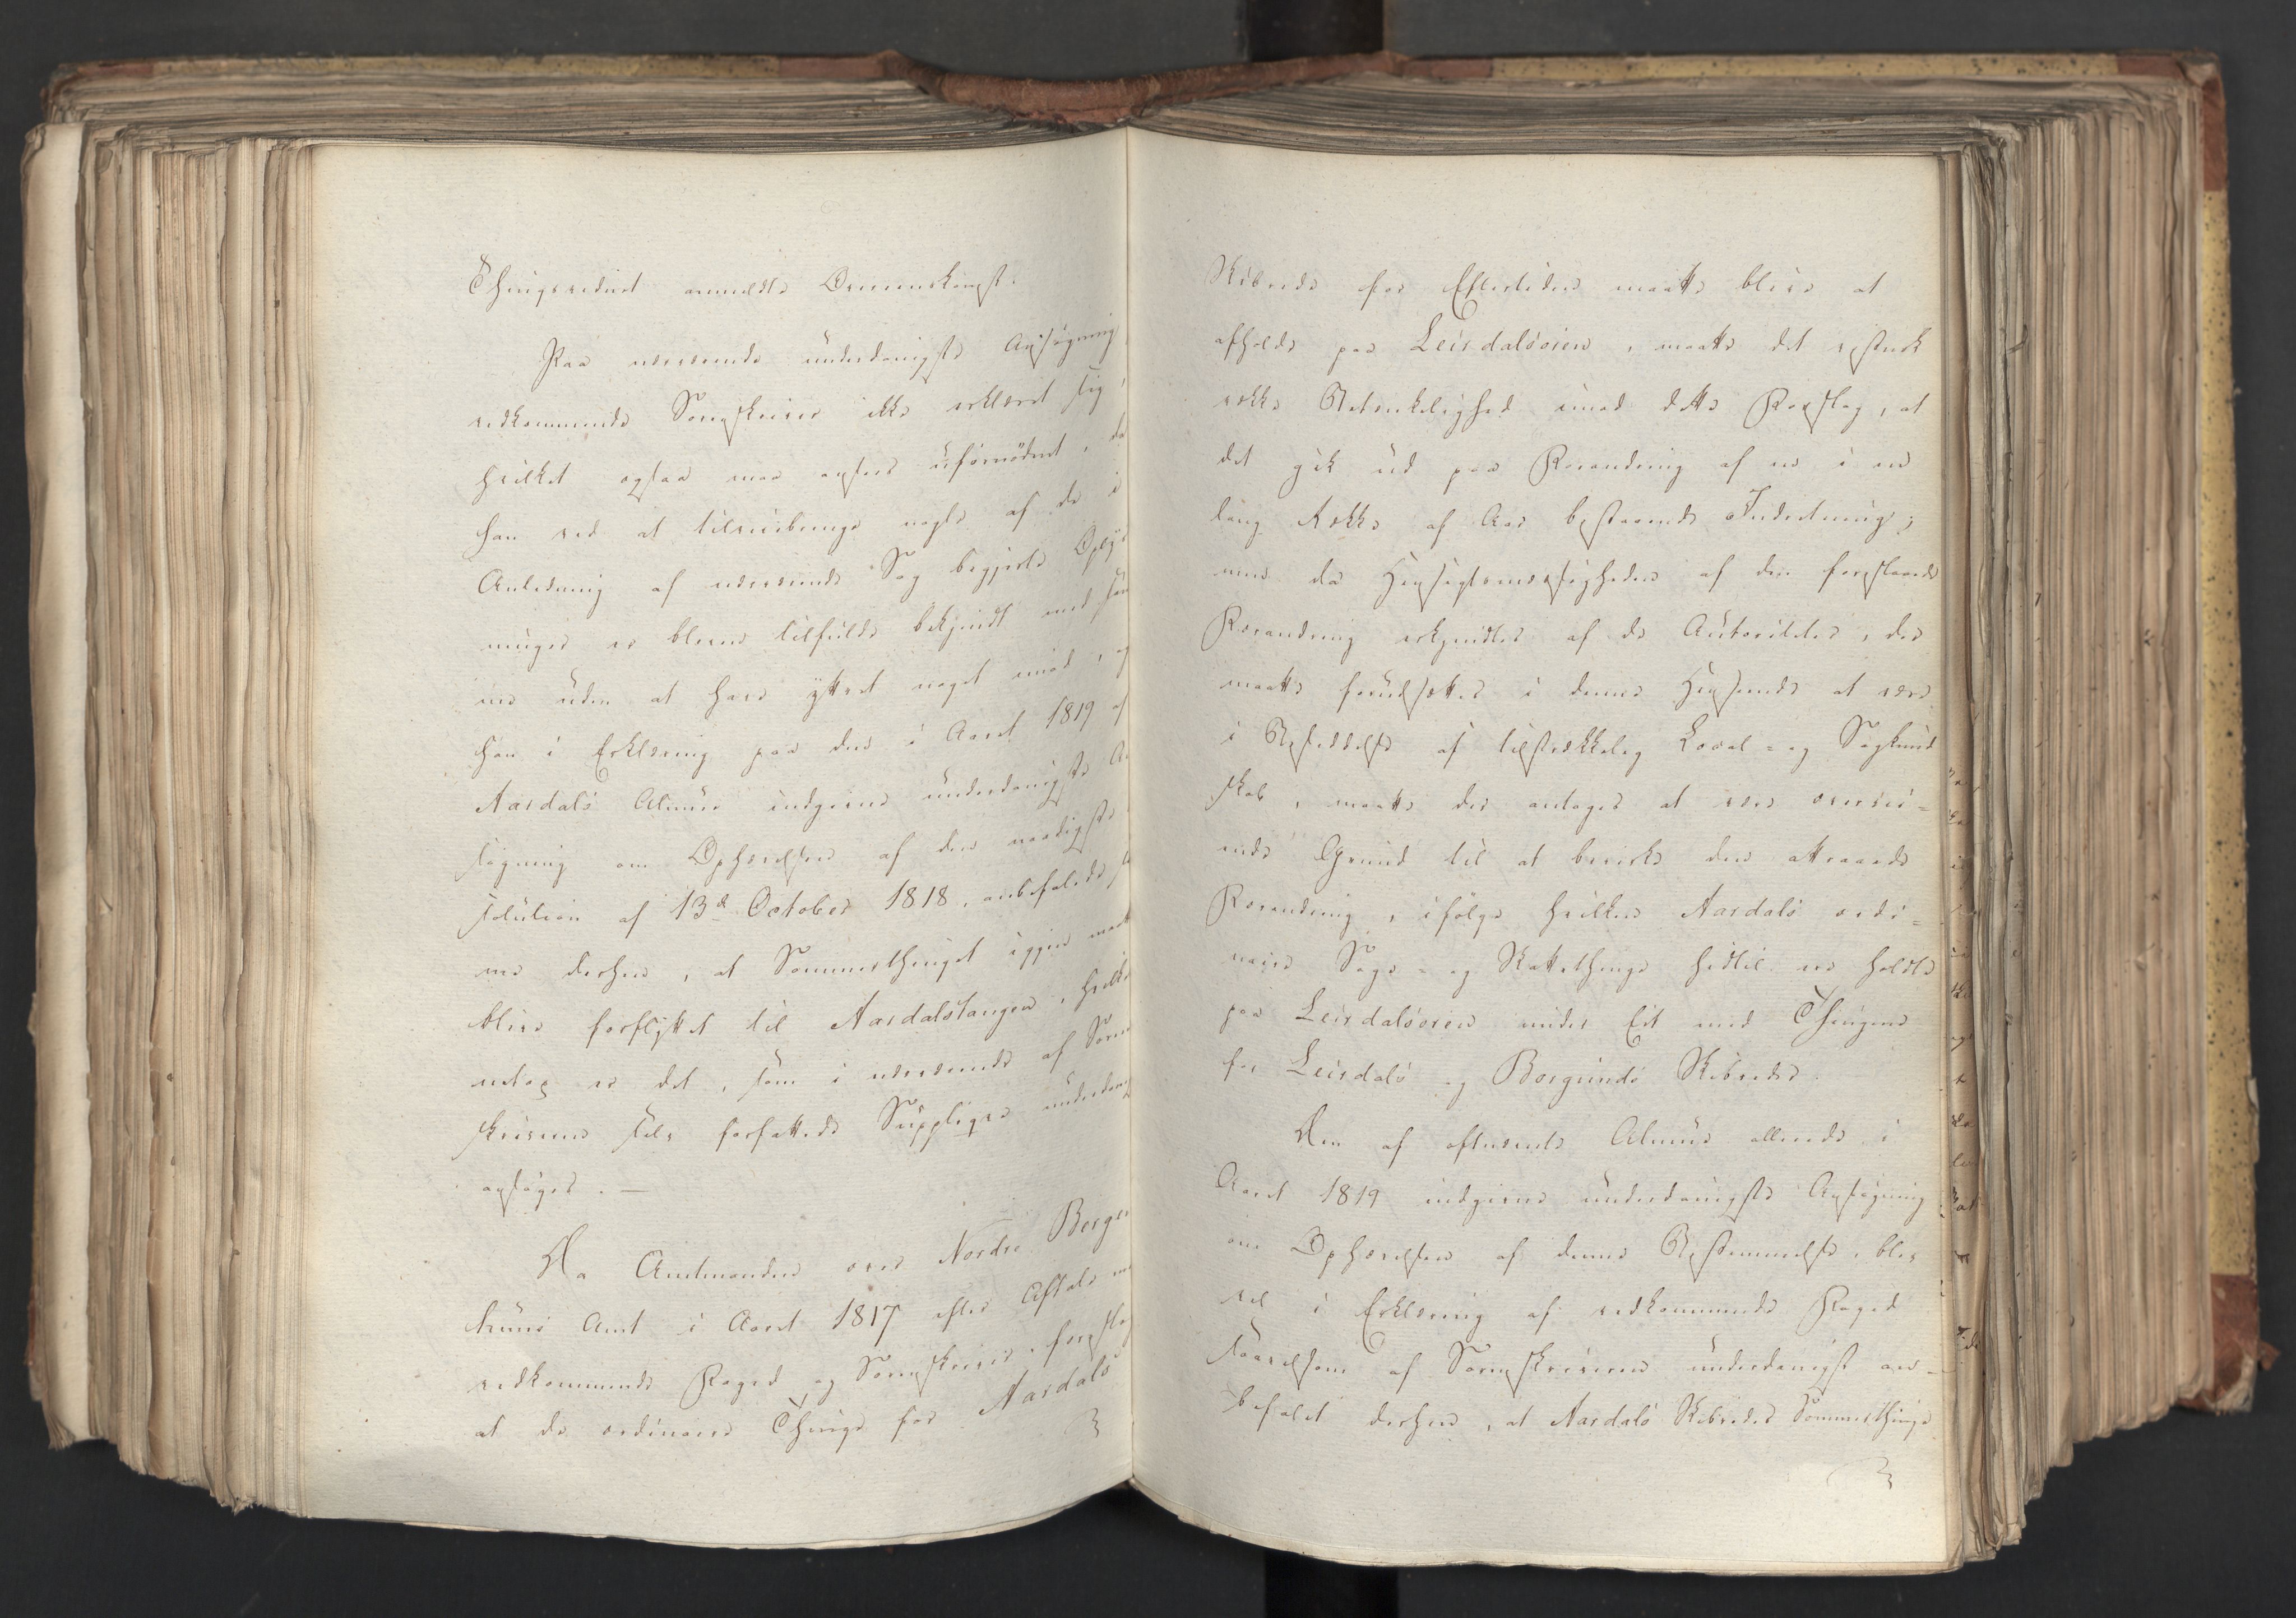 Thingsvidnet anmeldte Overenskomst.
Paa nærværende underdanigste Ansøgning
vedkommende Sorenskriver ikke erklæret sig,
hvilket ogsaa maa ansees ufornødent, da
han ved at tilveiebringe nogle af de i
Anledning af nærværende Sag begjerte Oplys
ninger er bleven tilfulde bekjendt med Sa
men uden at have yttret noget imod, og
han i Erklæring paa den i Aaret 1819 af
Aardals Almue indgivne underdanigste An
søgning om Ophævelsen af den naadigste
solution af 13de October 1818, anbefalede
me derhen, at Sommerthinget igjen maatte
blive forflyttet til Aardalstangen, hvilke
netop er det, som i nærværende af Soren
skriveren selv forfattede Supplique underdanig
ansøges. —
Da Amtmanden over Nordre Bergen
huus Amt i Aaret 1817 efter Aftale med
vedkommende Foged og Sorenskriver, foreslog
at de ordinære Thinge for Aardals
Skibrede for Eftertiden maatte blive at
afholde paa Leirdalsøren, maatte det vistnok
vække Betænkelighed imod dette Forslag, at
det gik ud paa Forandring af en i en
lang Række af Aar bestaaende Indretning;
men da Hensigtsmæssigheden af den foreslaaede
Forandring erkjendtes af de Autoriteter, der
maatte forudsættes i denne Henseende at være
i Besiddelse af tilstrækkelig Local- og Sagkund
skab, maatte der antages at være overvei-
ende Grund til at bevirke den attraaede
Forandring, ifølge hvilken Aardals ordi-
naire Sage- og Skattethinge hidtil ere holdte
paa Leirdalsøren under Eet med Thingene
for Leirdals og Borgunds Skibreder.
Den af oftnævnte Almue allerede i
Aaret 1819 indgivne underdanigste Ansøgning
om Ophævelsen af denne Bestemmelse, blev
vel i Erklæring af vedkommende Foged
saavelsom af Sorenskriveren underdanigst an-
befalet derhen, at Aardals Skibredes Sommerthinge